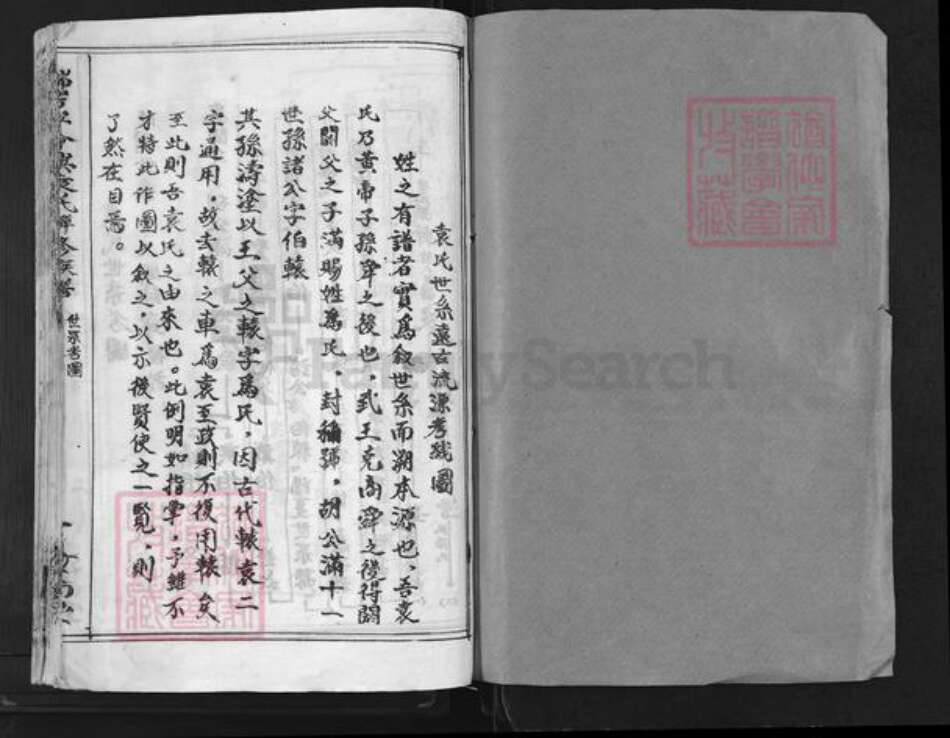 袁氏世系遠古流源考錢圖
姓之有譜者實為叙世系而朔本源也，吾袁
氏乃黃帝子孫舜之後也，武王克商舜之後得閼
父閼父之子滿賜姓為氏，封稱號，胡公滿十一
世孫諸公字伯轅
其孫濤塗以王父之轅字為氏，因古代轅袁二
字通用，故去轅之車為袁至政則不復用轅矣
至此則吾袁氏之由來也。此例明如指掌，予雖不
才特此作圖以叙之，以示後賢使之一覽，則
了然在目焉。
世系考圖
FamilySearch